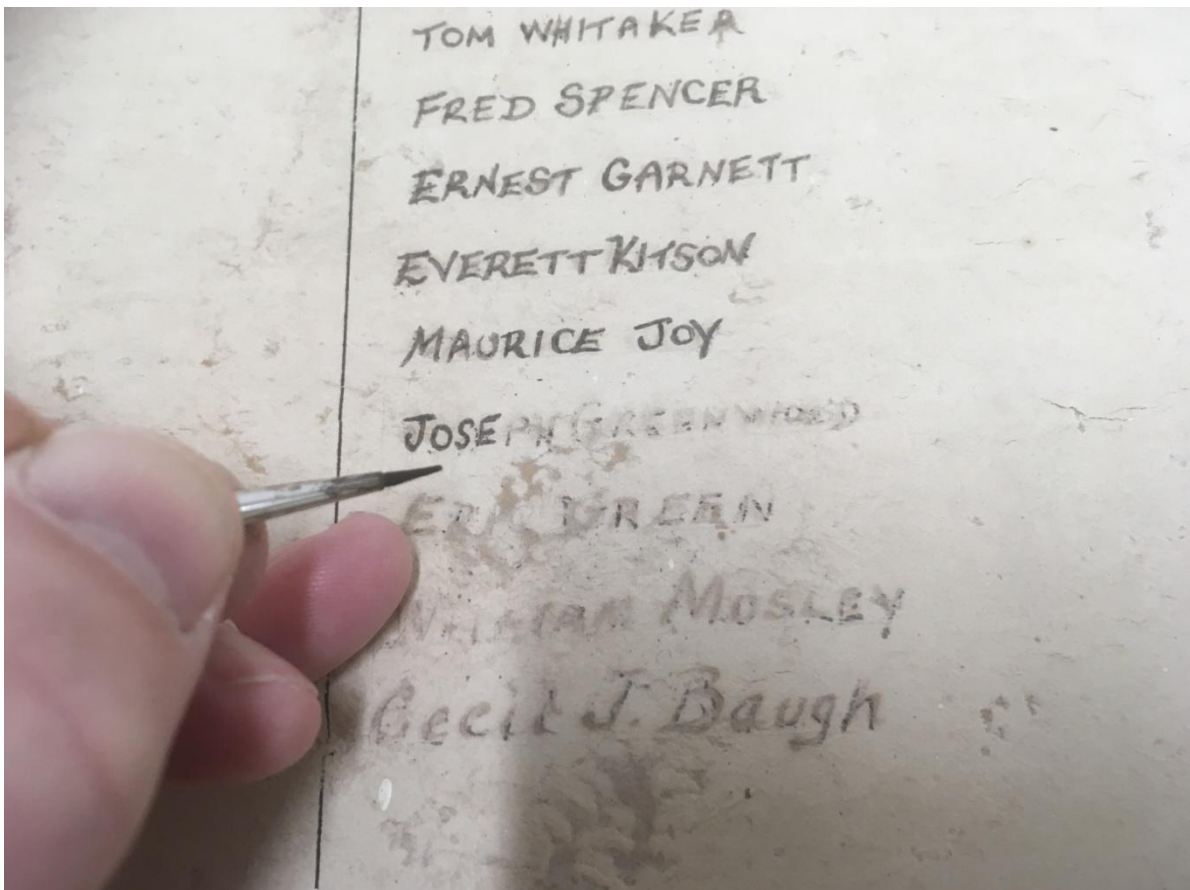 TOM WHITAKER
FRED SPENCER
ERNEST GARNETT
EVERETT KITSON
MAURICE JOY
JOSEPH GREENWOOD
ERIC GREEN
WILLIAM MOSLEY
Cecil J. Baugh